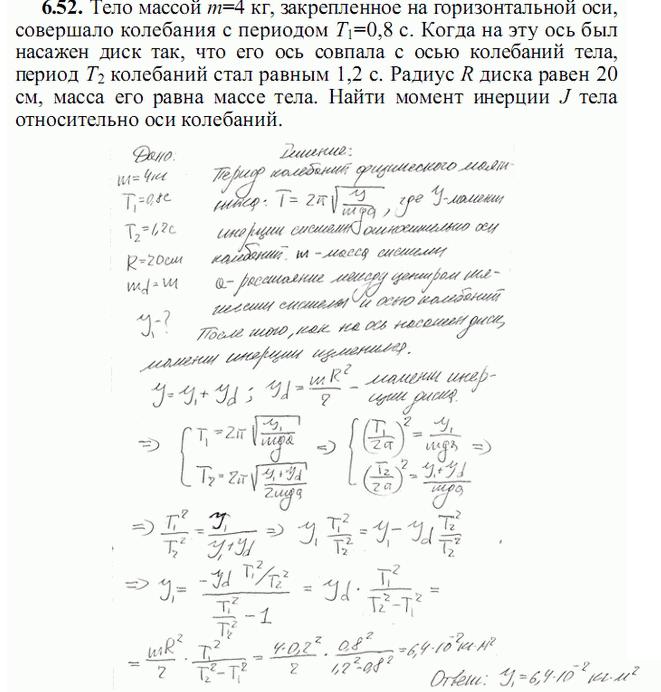 6.52. Тело массой m=4 кг, закрепленное на горизонтальной оси,
совершало колебания с периодом T₁=0,8 с. Когда на эту ось был
насажен диск так, что его ось совпала с осью колебаний тела,
период T₂ колебаний стал равным 1,2 с. Радиус R диска равен 20
см, масса его равна массе тела. Найти момент инерции J тела
относительно оси колебаний.
Дано: Решение:
m=4кг Период колебаний физического маят-
T₁=0,8с ника: T = 2π√(y/mga), где y-момент
T₂=1,2с инерции системы относительно оси
R=20см колебаний. m - масса системы
m_d=m a - расстояние между центром тя-
жести системы и осью колебаний
y₁-? После того, как на ось насажен диск,
момент инерции изменился.
y = y₁ + y_d ; y_d = mR²/2 - момент инер-
ции диска.
=> { T₁ = 2π√(y₁/mga) => { (T₁/2π)² = y₁/mga =>
T₂ = 2π√((y₁+y_d)/2mga) (T₂/2π)² = (y₁+y_d)/mga
=> T₁²/T₂² = y₁/(y₁+y_d) => y₁ T₁²/T₂² = y₁ - y_d T₂²/T₂²
=> y₁ = (-y_d T₁²/T₂²)/(T₁²/T₂² - 1) = y_d · T₁²/(T₂²-T₁²) =
= mR²/2 · T₁²/(T₂²-T₁²) = 4·0,2²/2 · 0,8²/(1,2²-0,8²) = 6,4·10⁻² кг·м²
Ответ: y₁ = 6,4·10⁻² кг·м²